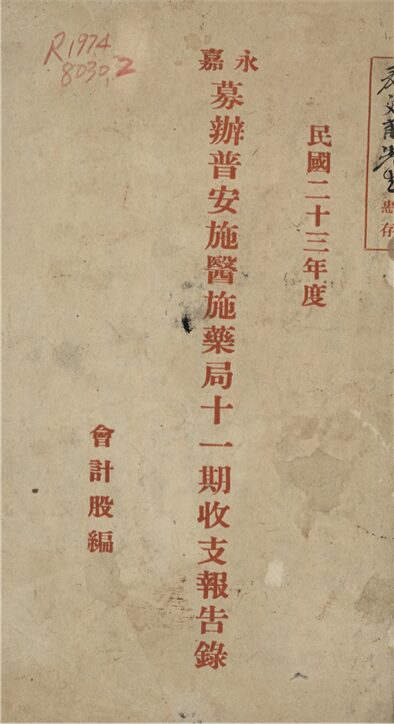 惠存
民國二十三年度
永嘉
募辦普安施醫施藥局十一期收支報告錄
會計股編
R1974
8030.2